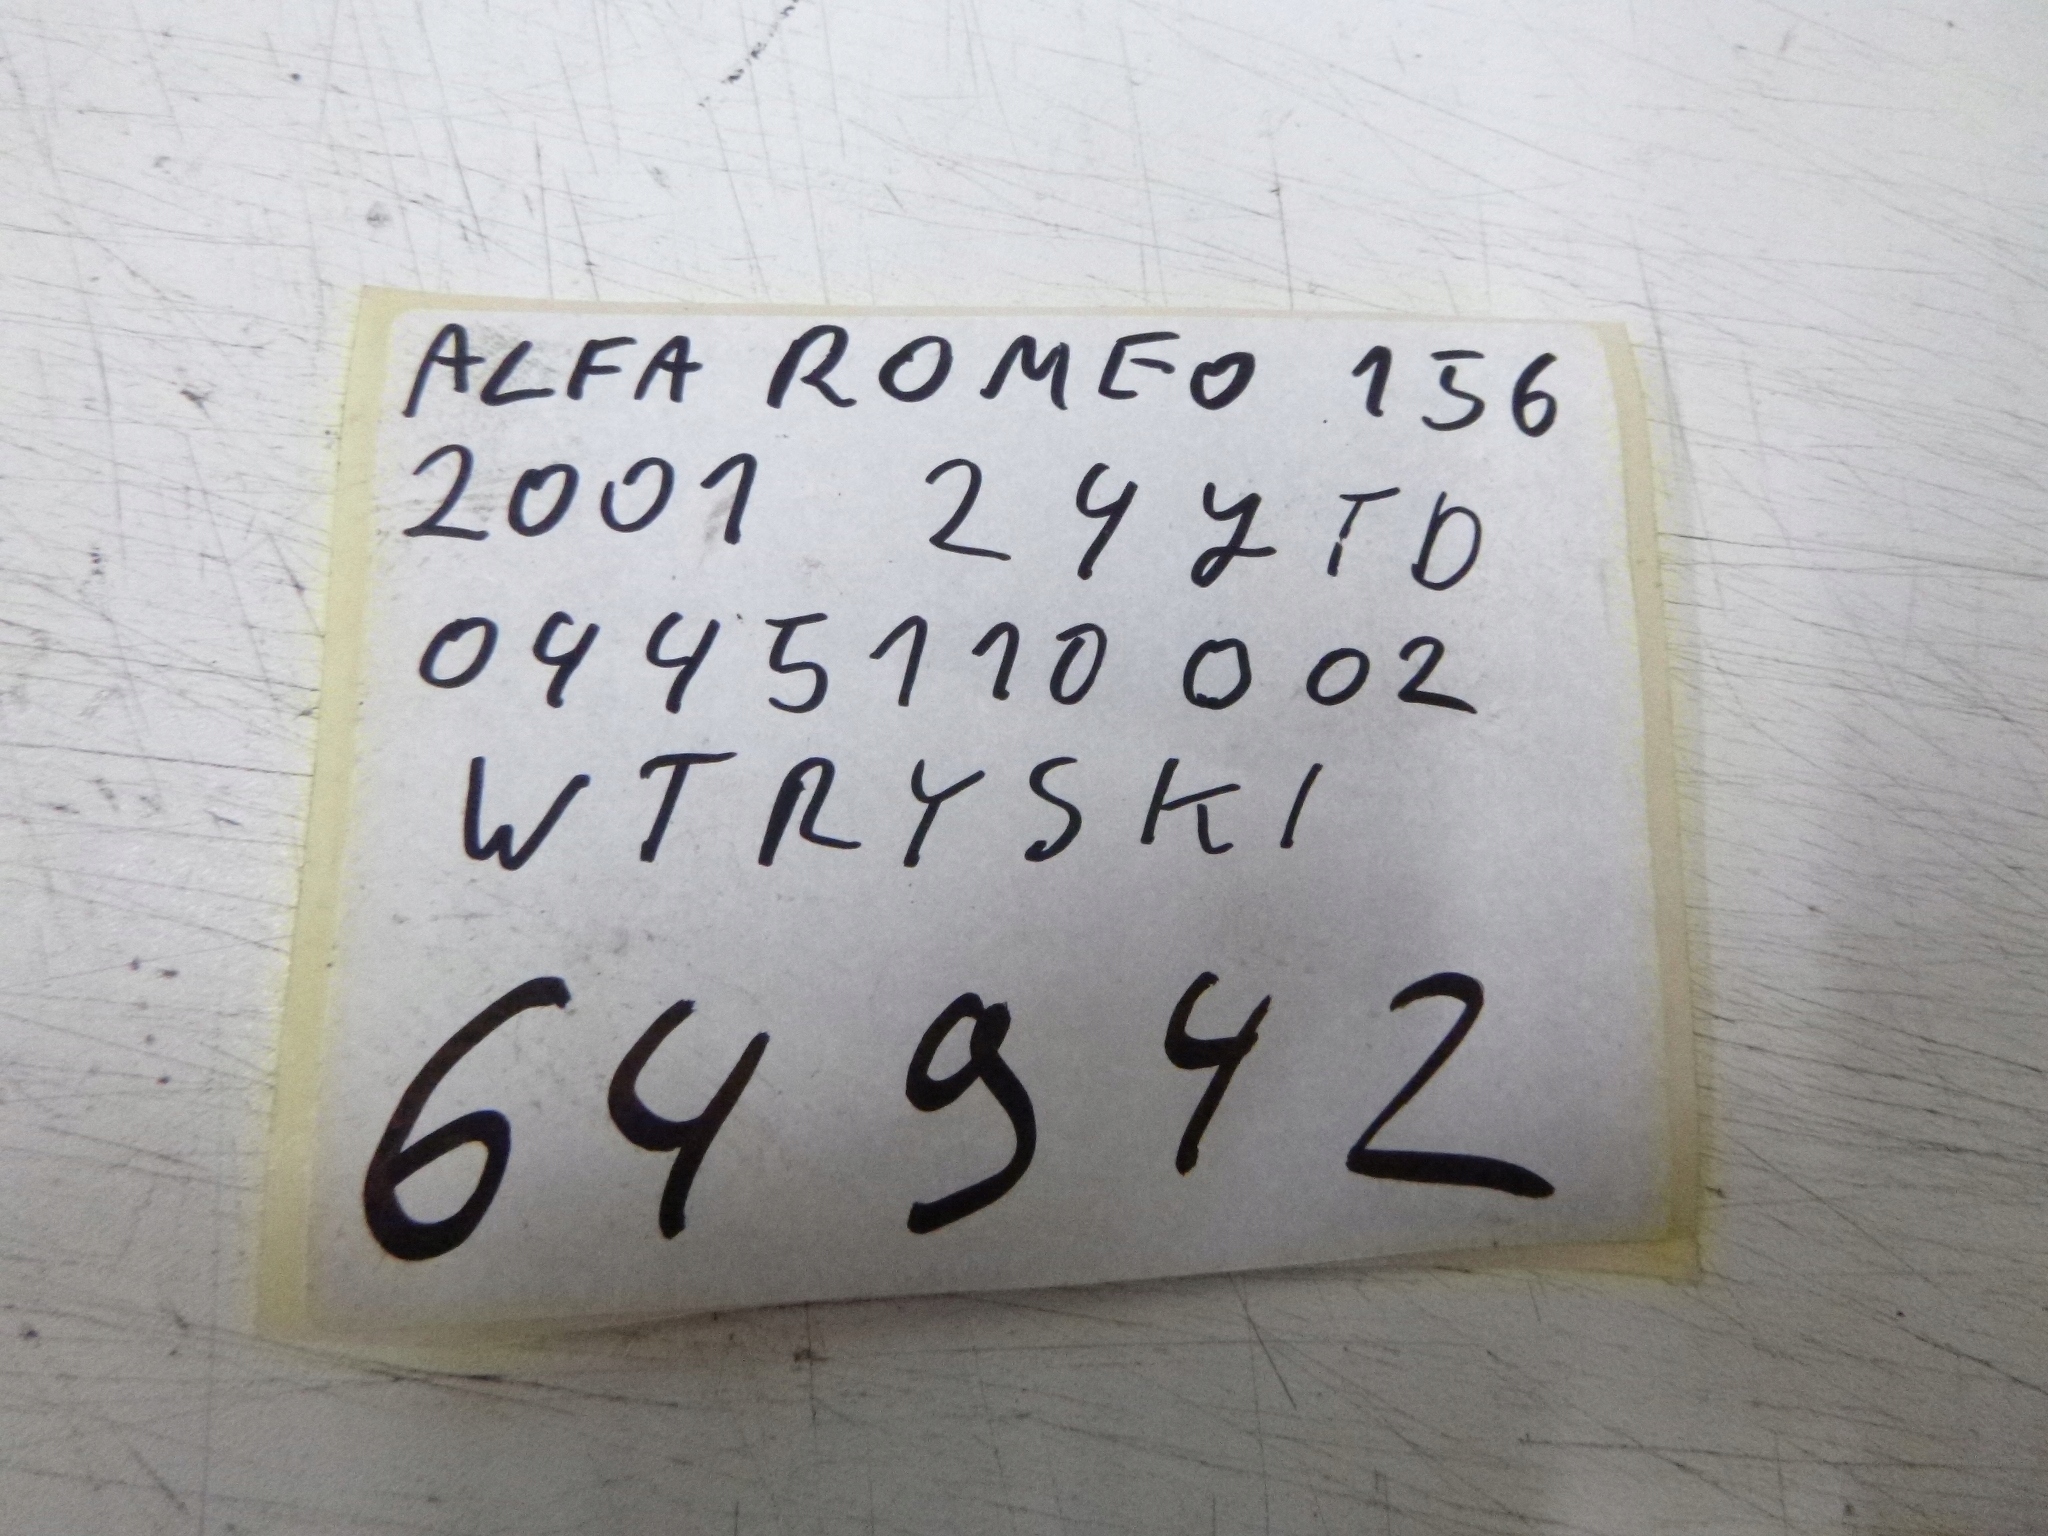 ALFA ROMEO 156
2001 2 4 JTD
0445110 0 02
WTRYSKI
64 9 4 2